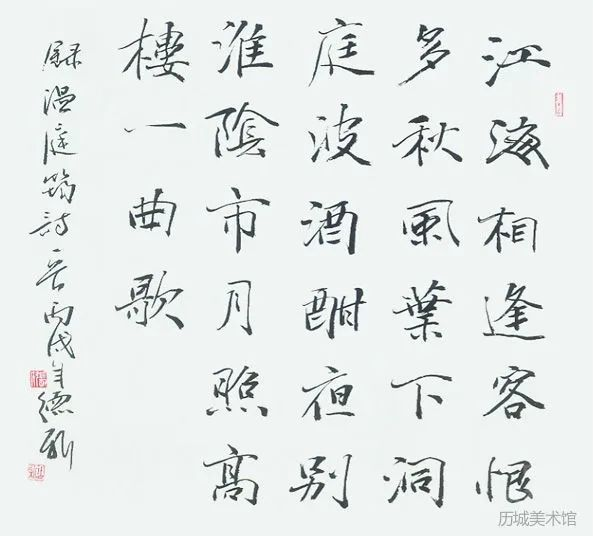 江海相逢客恨
多秋風葉下洞
庭波酒酣夜别
淮陰市月照高
樓一曲歌
録温庭筠詩一首丙戌年德
历城美术馆